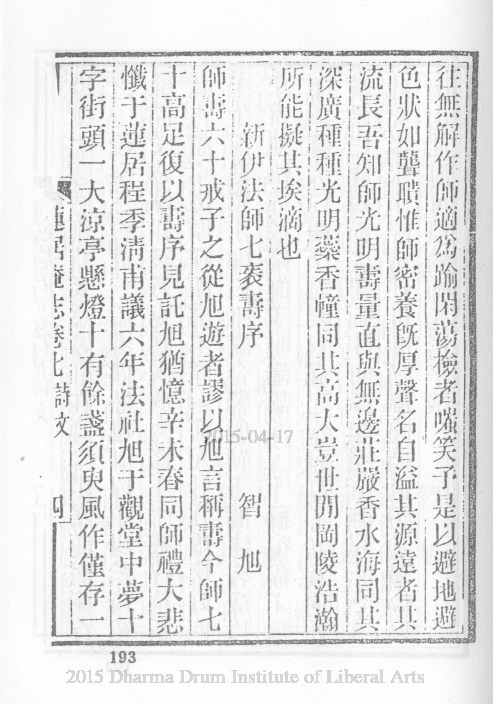 往無解作師適為踰閑蕩檢者嗤笑予是以避地避
色狀如聾聵惟師密養既厚聲名自溢其源遠者其
流長吾知師光明壽量直與無邊莊嚴香水海同其
深廣種種光明藥香幢同其高大豈世間岡陵浩瀚
所能擬其埃滴也
新伊法師七袠壽序 智旭
師壽六十戒子之從旭遊者謬以旭言稱壽今師七
十高足復以壽序見託旭猶憶辛未春同師禮大悲
懺于蓮居程季清甫議六年法社旭于觀堂中夢十
字街頭一大涼亭懸燈十有餘盞須臾風作僅存一
蓮居庵志卷七 詩文 四
2015-04-17
193
2015 Dharma Drum Institute of Liberal Arts